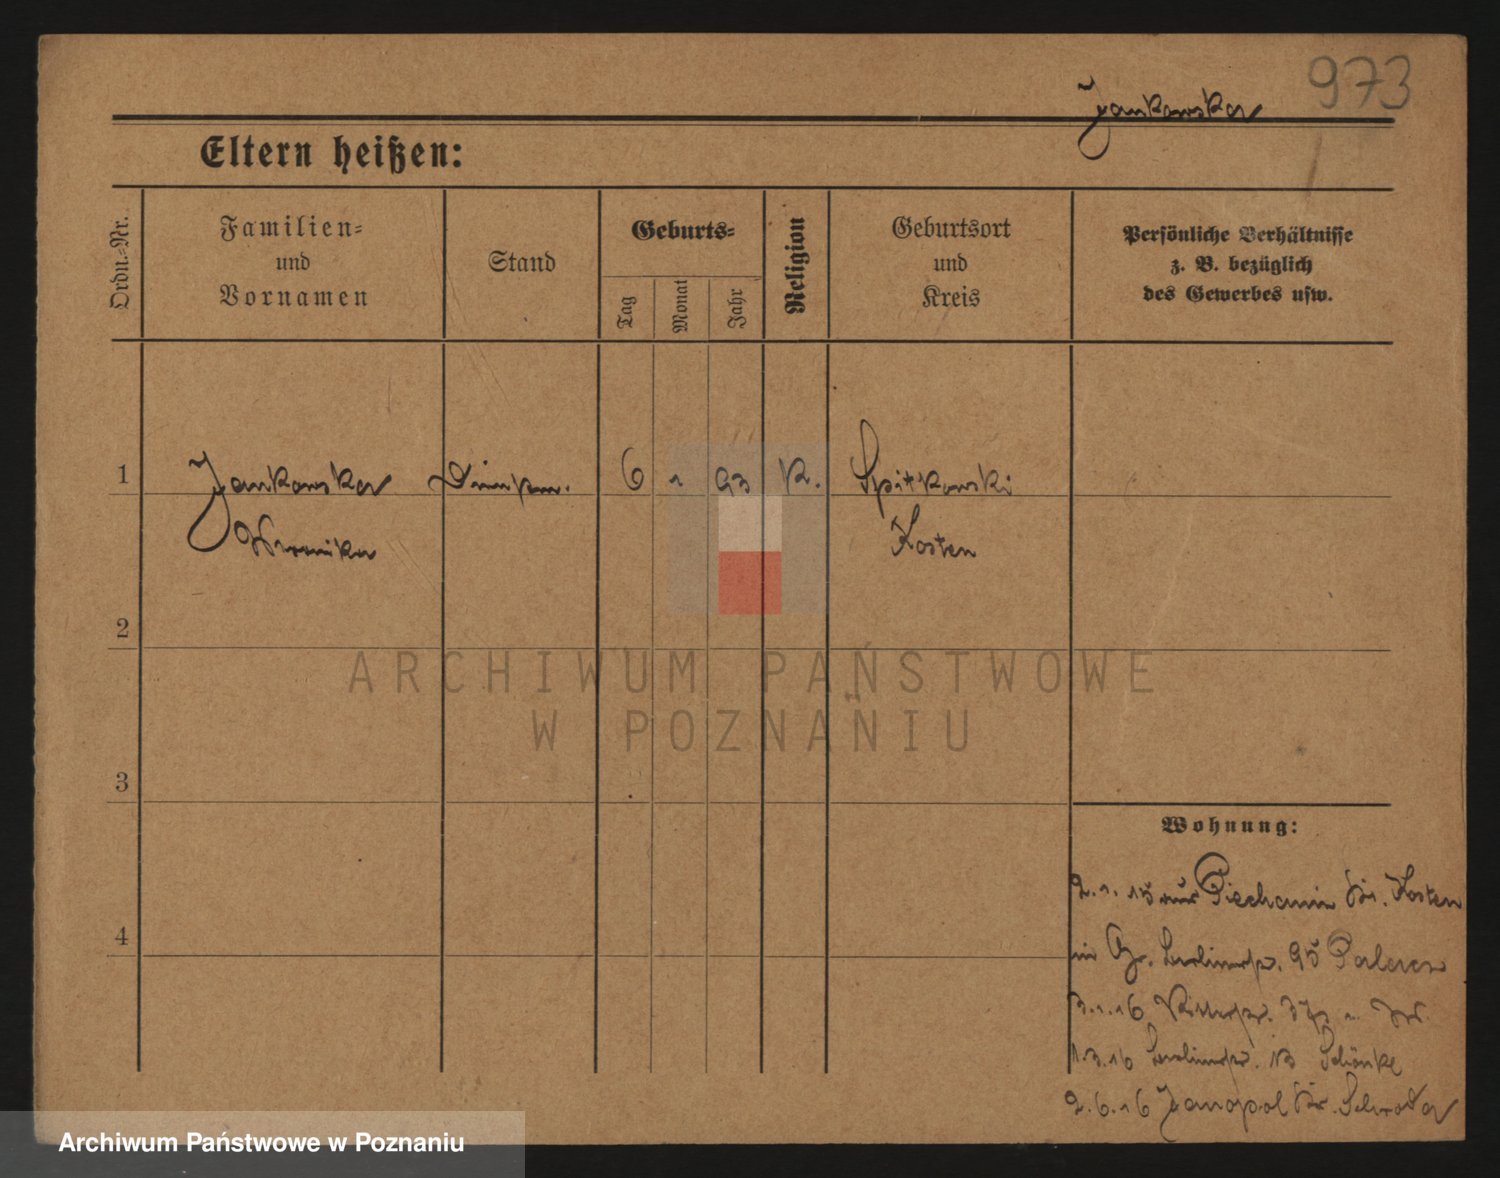 973
Jankowska
Eltern heißen:
Ordn.-Nr.
Familien-
und
Vornamen
Stand
Geburts-
Tag
Monat
Jahr
Religion
Geburtsort
und
Kreis
Persönliche Verhältnisse
z. B. bezüglich
des Gewerbes usw.
1 Jankowska 6 1 93 K. Spitkowski
Weronika Kosten
2
ARCHIWUM PAŃSTWOWE
W POZNANIU
3
Wohnung:
2.1.15 aus Piechanin Kr. Kosten
in Gr. Berlinerstr. 95
3.1.16 Ritterstr.
1.3.16 Berlinerstr. 13 Schönke
2.6.16 Janopol Kr. Schroda
4
Archiwum Państwowe w Poznaniu